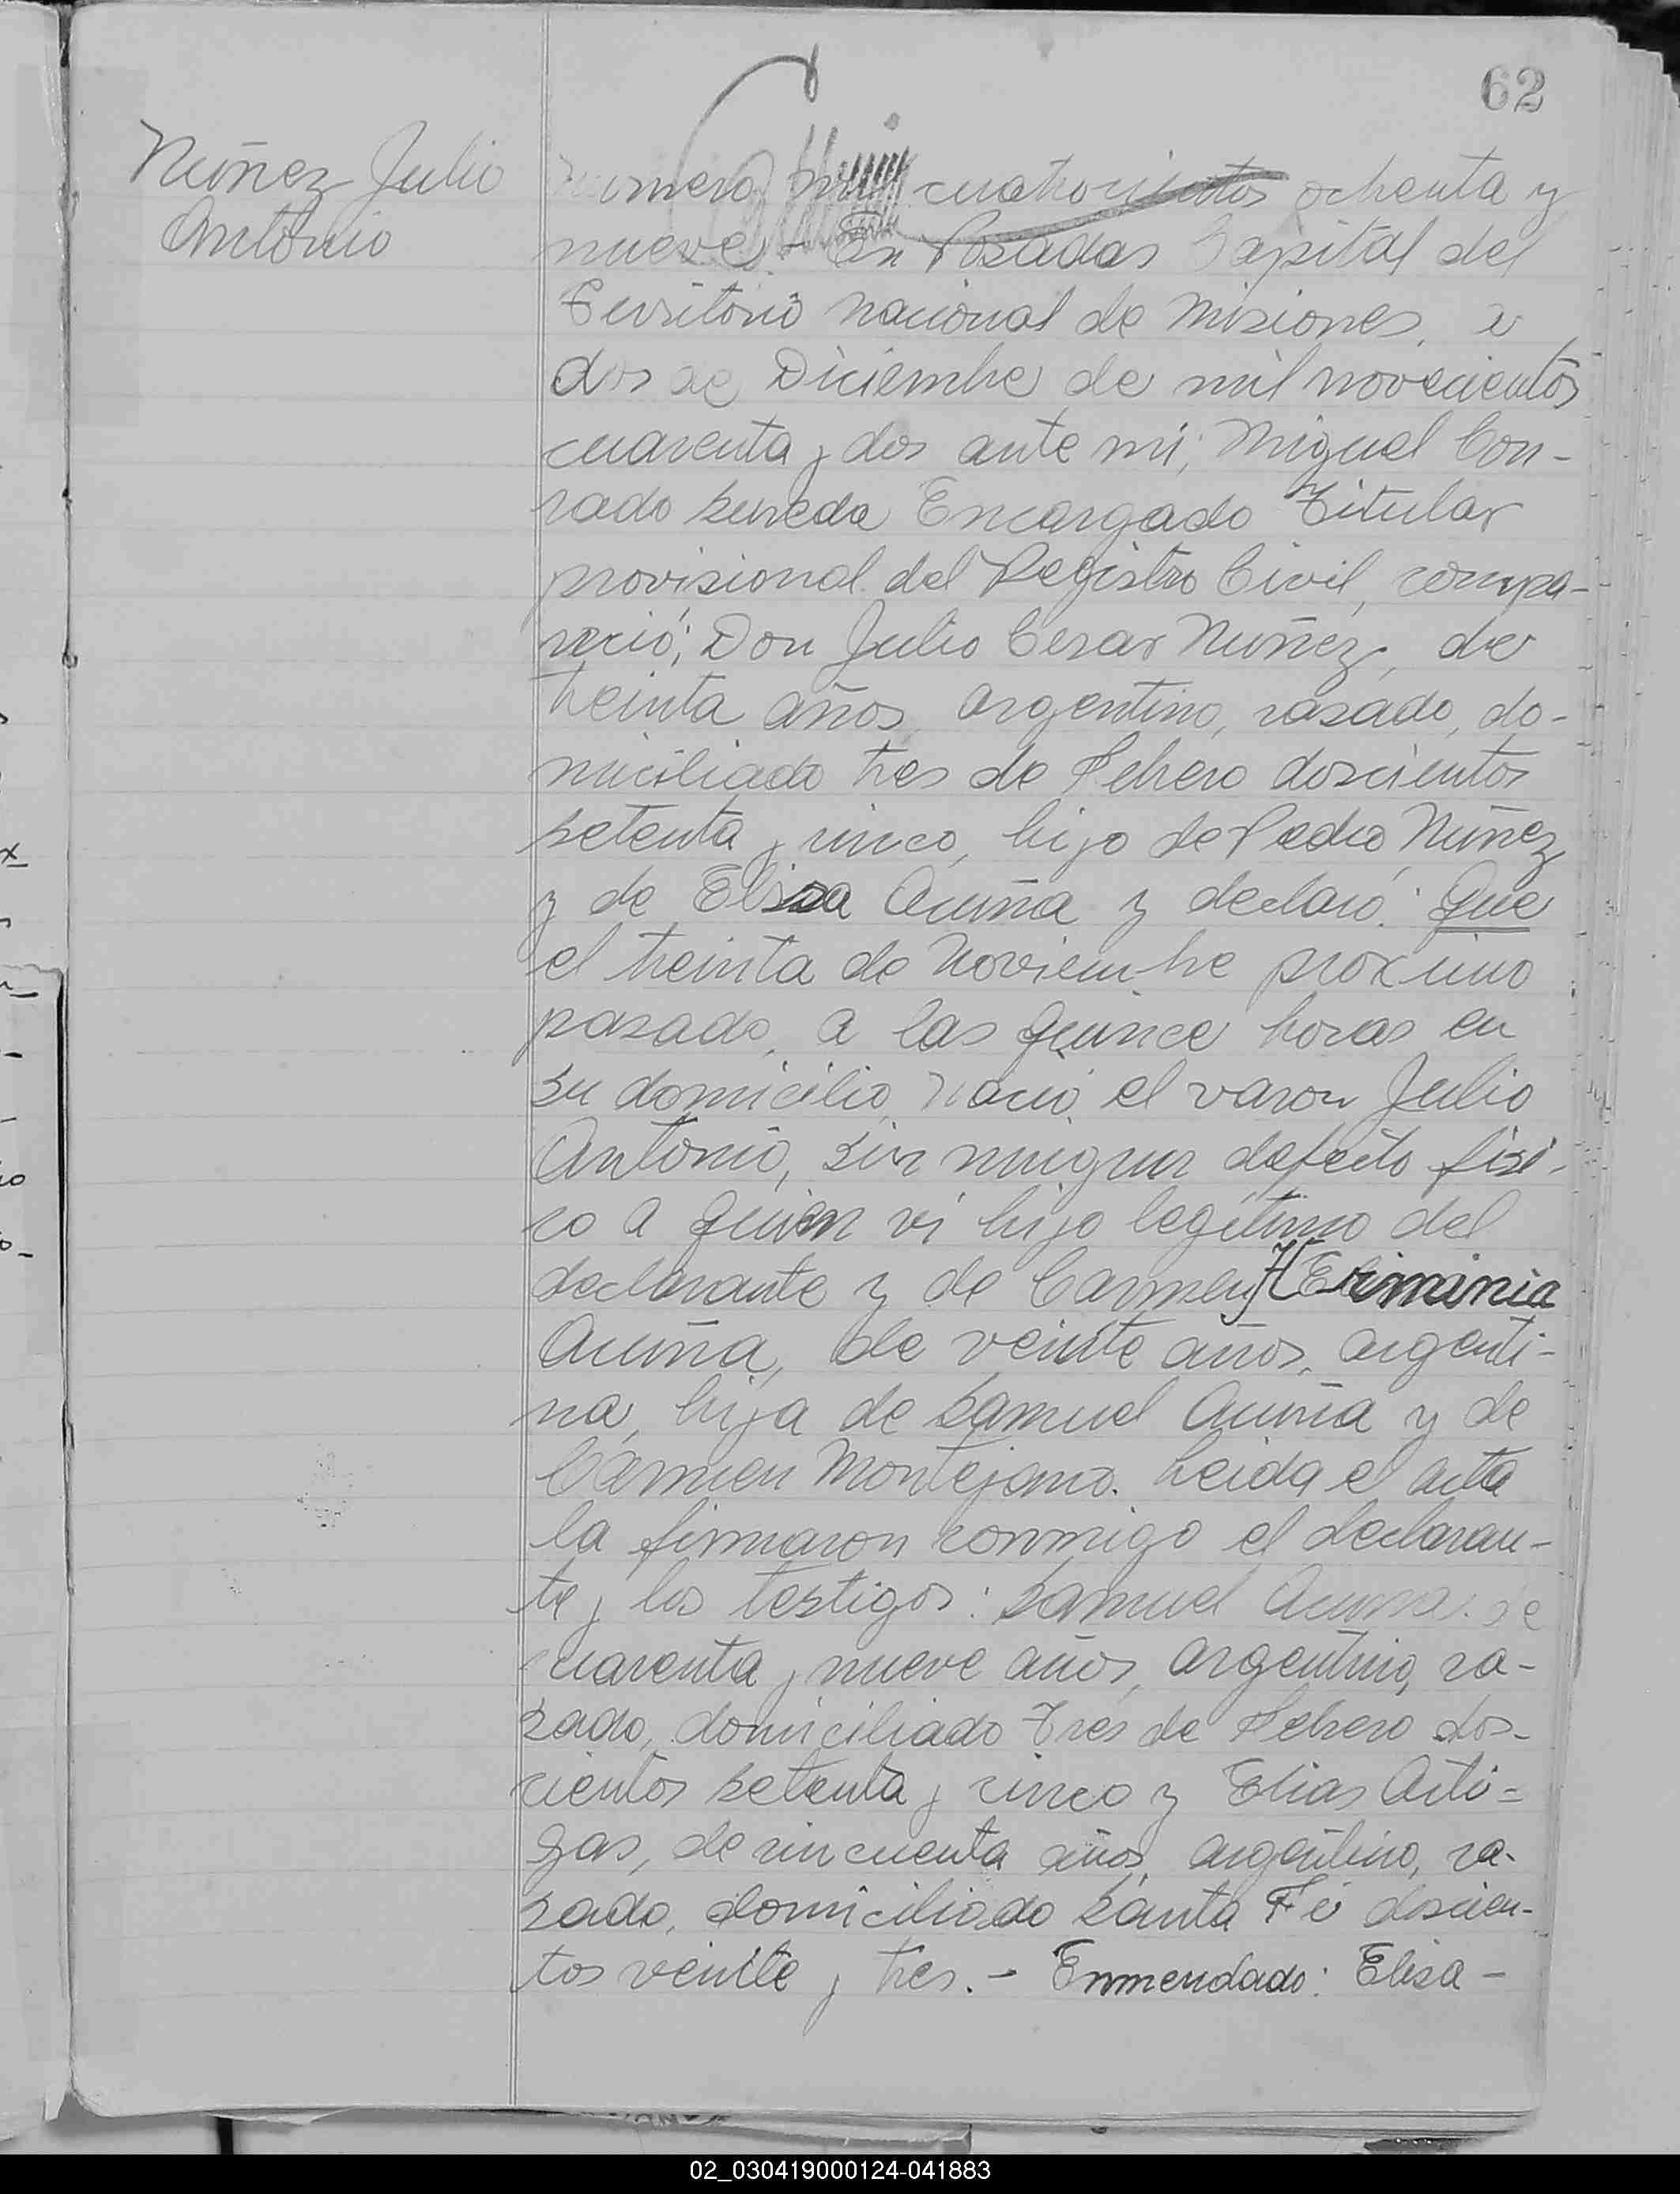 62
Nuñez Julio
Antonio
Numero mil cuatrocientos ochenta y
nueve.- En Posadas Capital del
Territorio Nacional de Misiones, a
dos de Diciembre de mil novecientos
cuarenta y dos ante mi; Miguel Con-
rado Encargado Titular
provisional del Registro Civil, compa-
reció; Don Julio Cesar Nuñez, de
treinta años, argentino, casado, do-
miciliado tres de Febrero doscientos
setenta y cinco, hijo de Pedro Nuñez
y de Elisa Acuña y declaró: Que
el treinta de Noviembre proximo
pasado, a las quince horas en
su domicilio, nació el varon Julio
Antonio, sin ningun defecto fisi-
co a quien vi hijo legitimo del
declarante y de Carmen
Acuña, de veinte años, argenti-
na, hija de Samuel Acuña y de
Carmen Montejano. Leida el acta
la firmaron conmigo el declaran-
te y los testigos: Samuel Acuña. de
cuarenta y nueve años, argentino, ca-
sado, domiciliado Tres de Febrero dos-
cientos setenta y cinco y Elias Arti=
gas, de cincuenta años, argentino, ca-
sado, domiciliado Santa Fé doscien-
tos veinte y tres.- Enmendado: Elisa-
02_030419000124-041883